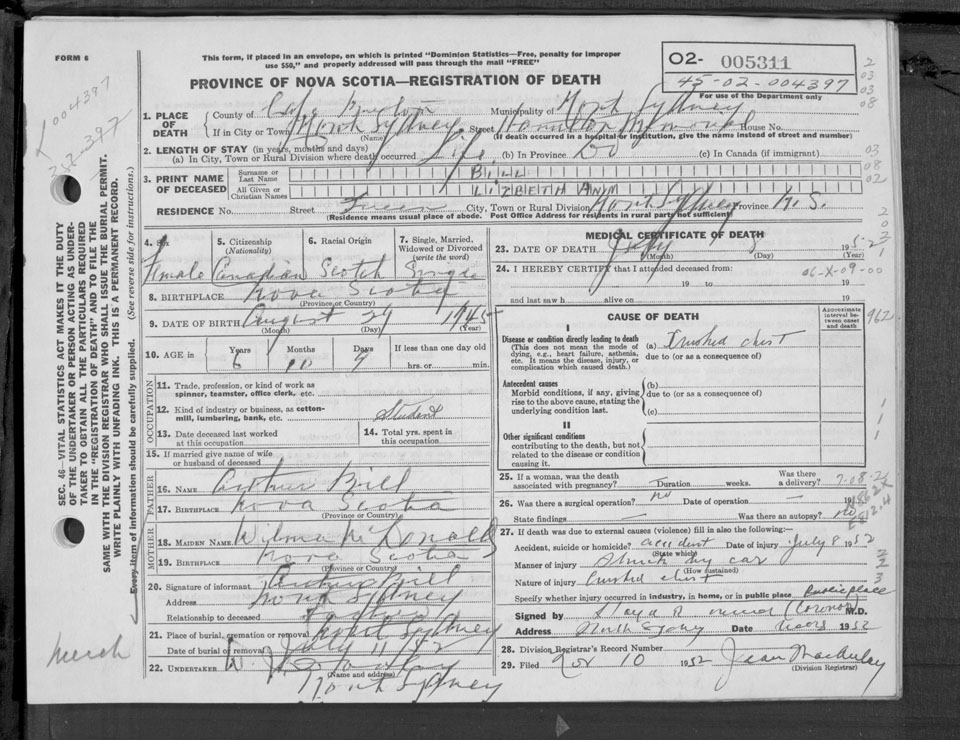 FORM 6
This form, if placed in an envelope, on which is printed "Dominion Statistics—Free, penalty for improper
use $50," and properly addressed will pass through the mail "FREE"
PROVINCE OF NOVA SCOTIA—REGISTRATION OF DEATH
O2- 005311
45-02-004397
For use of the Department only
1. PLACE OF DEATH
County of Cape Breton Municipality of North Sydney
If in City or Town North Sydney Street Hamilton Memorial House No.
(Name) (If death occurred in a hospital or institution, give the name instead of street and number)
2. LENGTH OF STAY (in years, months and days)
(a) In City, Town or Rural Division where death occurred Life (b) In Province Do (c) In Canada (if immigrant)
3. PRINT NAME OF DECEASED
Surname or Last Name BILL
All Given or Christian Names LIZBETH ANN
RESIDENCE No. Street Queen City, Town or Rural Division North Sydney Province N.S.
(Residence means usual place of abode. Post Office Address for residents in rural parts not sufficient)
4. Sex Female
5. Citizenship (Nationality) Canadian
6. Racial Origin Scotch
7. Single, Married, Widowed or Divorced (write the word) Single
8. BIRTHPLACE Nova Scotia
(Province or Country)
9. DATE OF BIRTH August 29 1945
(Month) (Day) (Year)
10. AGE in Years 6 Months 10 Days 9 If less than one day old
hrs. or min.
OCCUPATION
11. Trade, profession, or kind of work as
spinner, teamster, office clerk, etc.
12. Kind of industry or business, as cotton-
mill, lumbering, bank, etc. Student
13. Date deceased last worked
at this occupation
14. Total yrs. spent in
this occupation
15. If married give name of wife
or husband of deceased
FATHER
16. NAME Arthur Bill
17. BIRTHPLACE Nova Scotia
(Province or Country)
MOTHER
18. MAIDEN NAME Wilma McDonald
19. BIRTHPLACE Nova Scotia
(Province or Country)
20. Signature of informant Arthur Bill
Address North Sydney
Relationship to deceased Father
21. Place of burial, cremation or removal North Sydney
Date of burial or removal July 11/52
22. UNDERTAKER
(Name and address)
North Sydney
MEDICAL CERTIFICATE OF DEATH
23. DATE OF DEATH July 8 1952
(Month) (Day) (Year)
24. I HEREBY CERTIFY that I attended deceased from:
06-X-09-00
19 to 19
and last saw h alive on 19
CAUSE OF DEATH
Approximate interval between onset and death
962
I
Disease or condition directly leading to death
(This does not mean the mode of
dying, e.g., heart failure, asthenia,
etc. It means the disease, injury, or
complication which caused death.)
(a) Crushed chest
due to (or as a consequence of)
Antecedent causes
Morbid conditions, if any, giving
rise to the above cause, stating the
underlying condition last.
(b)
due to (or as a consequence of)
(c)
II
Other significant conditions
contributing to the death, but not
related to the disease or condition
causing it.
25. If a woman, was the death
associated with pregnancy? Duration weeks. Was there
a delivery?
26. Was there a surgical operation? no Date of operation — 19
State findings — Was there an autopsy? no
27. If death was due to external causes (violence) fill in also the following:—
Accident, suicide or homicide? accident Date of injury July 8 1952
(State which)
Manner of injury Struck by car
(How sustained)
Nature of injury Crushed chest
Specify whether injury occurred in industry, in home, or in public place Public place
Signed by (Coroner) M.D.
Address North Sydney Date 1952
28. Division Registrar's Record Number
29. Filed Nov 10 1952
(Division Registrar)
SEC. 46—VITAL STATISTICS ACT MAKES IT THE DUTY
OF THE UNDERTAKER OR PERSON ACTING AS UNDER-
TAKER TO OBTAIN ALL THE PARTICULARS REQUIRED
IN THE "REGISTRATION OF DEATH" AND TO FILE THE
SAME WITH THE DIVISION REGISTRAR WHO SHALL ISSUE THE BURIAL PERMIT.
WRITE PLAINLY WITH UNFADING INK. THIS IS A PERMANENT RECORD.
Every item of information should be carefully supplied. (See reverse side for instructions.)